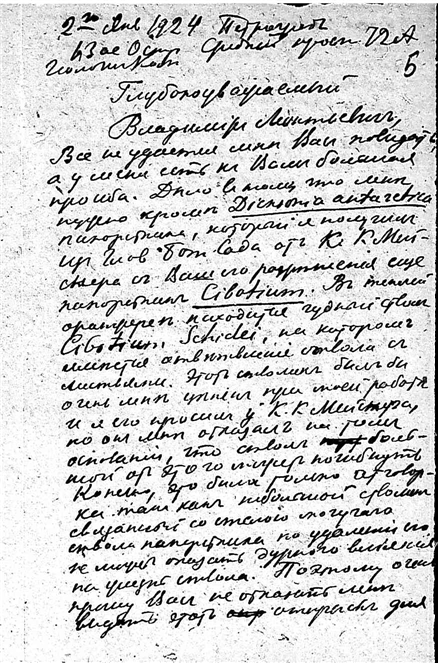 2го Янв 1924 Петроград
Средний просп 72А
5
Глубокоуважаемый
Владимiръ Леонтьевичъ,
Все не удается мнѣ Васъ повидать,
а у меня есть къ Вамъ большая
просьба. Дѣло въ томъ что мнѣ
нужно кромѣ Dicksonia antarctica
папоротника, который я получилъ
изъ Бот Сада отъ К. Р. Мей-
снера съ Вашего разрѣшенiя еще
папоротникъ Cibotium. Въ теплой
оранжереѣ находится чудный стволъ
Cibotium Schidei, на которомъ
имѣется отвѣтвленiе ствола съ
листьями. Этотъ стволикъ былъ бы
очень мнѣ цѣненъ при моей работѣ
и я его просилъ у К. Р. Мейснера,
но онъ мнѣ отказалъ на томъ
основанiи, что стволъ боль-
шой отъ этого можетъ погибнуть
Конечно, это была только отговор-
ка такъ какъ небольшой стволикъ
связанный со могучаго
ствола папоротника по удаленiи его
не можетъ оказать дурного влiянiя
на ствола. Поэтому очень
прошу Васъ не отказать мнѣ
выдать этотъ отпрыскъ для